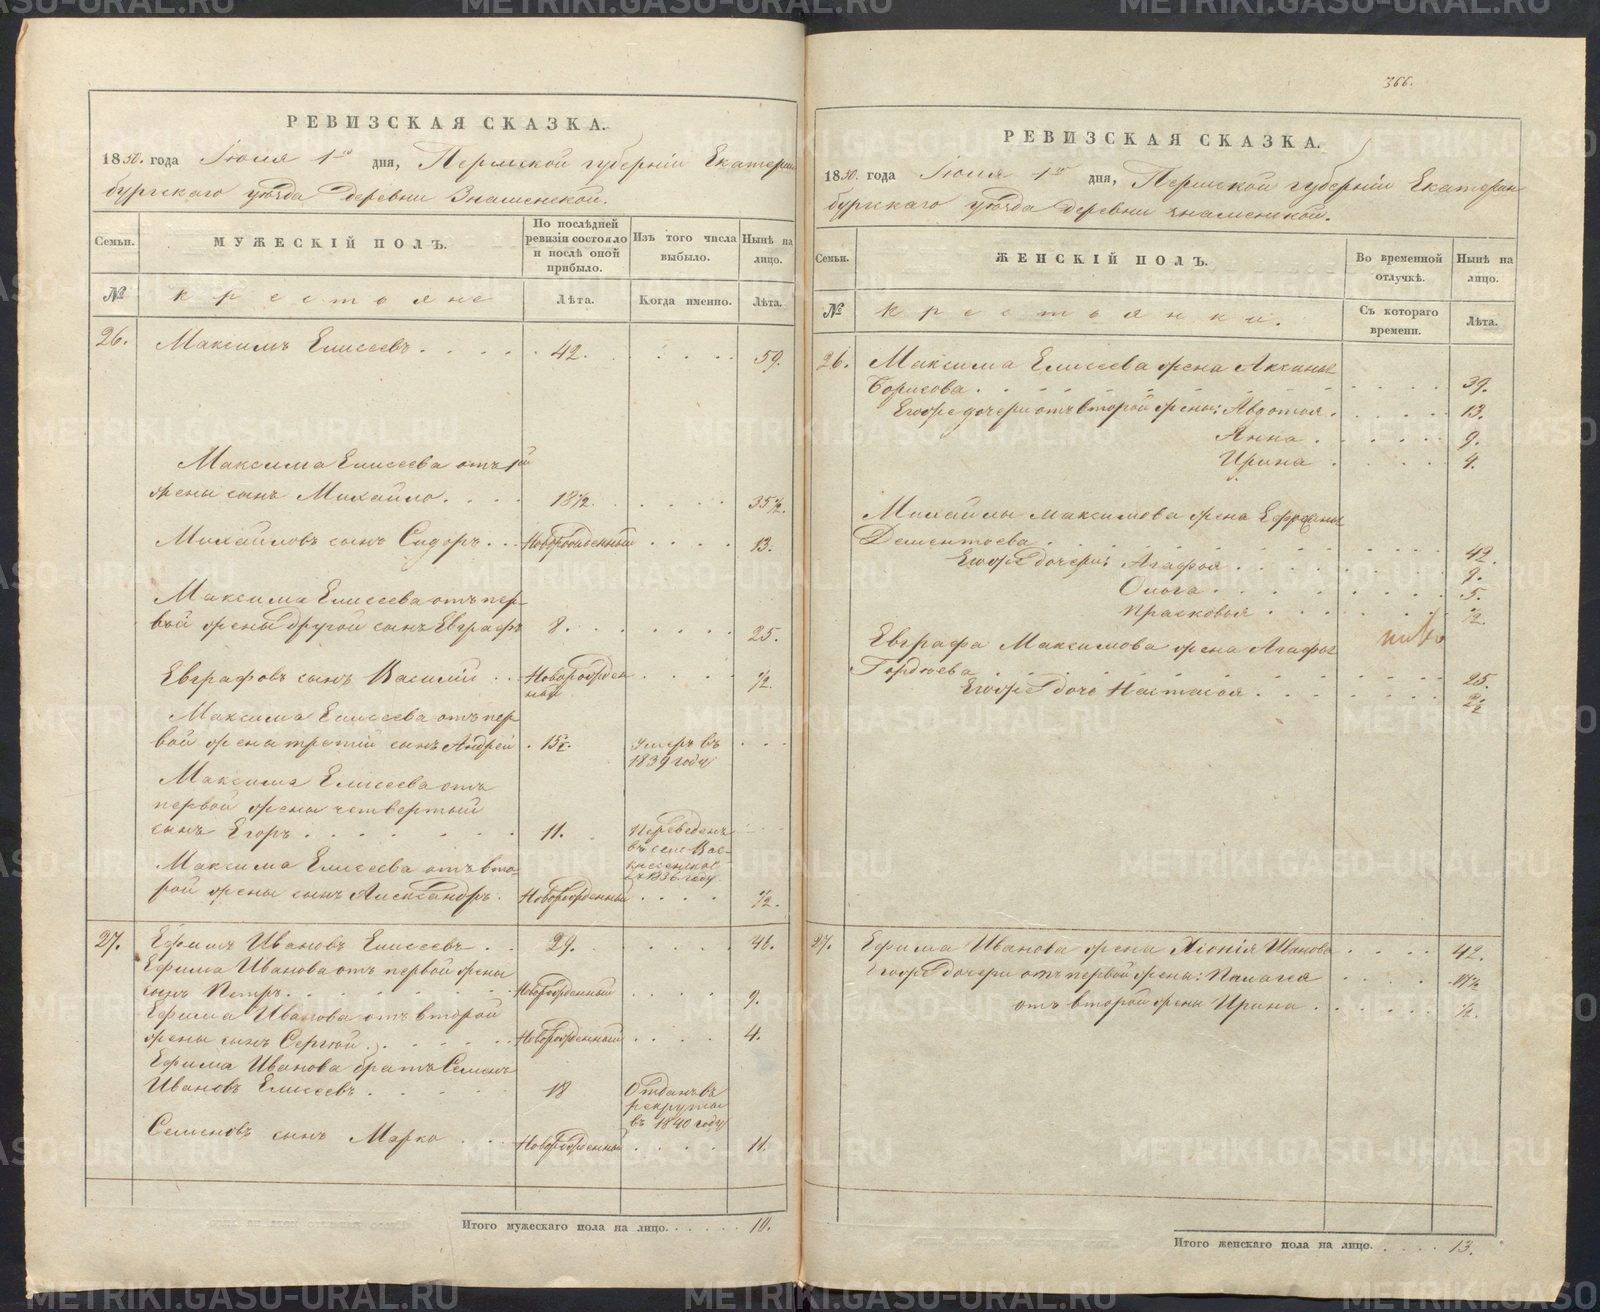 РЕВИЗСКАЯ СКАЗКА.
1850. года Іюля 1го дня, Пермской губерніи Екатерин
бургскаго уѣзда деревни Знаменской.
Семьи.
МУЖЕСКІЙ ПОЛЪ.
По послѣдней
ревизіи состояло
и послѣ оной
прибыло.
Изъ того числа
выбыло.
Нынѣ на
лицо.
№
крестьяне
Лѣта.
Когда именно.
Лѣта.
26. Максимъ Елисеевъ . . . . 42. . . . . 59.
Максима Елисеева отъ 1й
жены сынъ Михайло. . . . 18½. . . . . 35½.
Михайловъ сынъ Сидоръ. . . Новорожденный . . . . 13.
Максима Елисеева отъ пер-
вой жены другой сынъ Евграфъ 8. . . . . . 25.
Евграфовъ сынъ Василій . . Новорожден . . . . ½.
ный
Максима Елисеева отъ пер
вой жены третій сынъ Андрей . 15. Умеръ въ . . .
1839 году
Максима Елисеева отъ
первой жены четвертый
сынъ Егоръ . . . . . . . 11. Переведенъ
въ село Вос-
кресенское
въ 1836 году
Максима Елисеева отъ вто-
рой жены сынъ Александръ. Новорожденный . . . . ½.
27. Ефимъ Ивановъ Елисеевъ . . 29. . . . . 46.
Ефима Иванова отъ первой жены
сынъ Петръ. . . . . . . . Новорожденный . . . . 9.
Ефима Иванова отъ второй
жены сынъ Сергѣй . . . . . . Новорожденный . . . . 4.
Ефима Иванова братъ Семенъ
Ивановъ Елисеевъ . . . . . 18 Отданъ въ
рекруты
въ 1840 году
Семеновъ сынъ Марко . . . Новорожденный . . . . 11.
Итого мужескаго пола на лицо. . . . . . 10.
366.
РЕВИЗСКАЯ СКАЗКА.
1850. года Іюля 1го дня, Пермской губерніи Екатерин
бургскаго уѣзда деревни Знаменской.
Семьи.
ЖЕНСКІЙ ПОЛЪ.
Во временной
отлучкѣ.
Нынѣ на
лицо.
№
крестьянки.
Съ котораго
времени.
Лѣта.
26. Максима Елисеева жена Аксинья
Борисова . . . . . . . . . . . 39.
Егожъ дочери отъ второй жены: Авдотья. . . . . 13.
Анна . . . . . 9.
Ирина . . . . 4.
Михайлы Максимова жена Ефросинья
Дементьева . . . . . . . . . . . 42.
Егожъ дочери: Агафья . . . . . . . 9.
Ольга . . . . . . . . 5.
Прасковья . . . . . . ½.
Евграфа Максимова жена Агафья
Гордѣева . . . . . . . . . . 25.
Егожъ дочь Настасья . . . . . . . 2½
27. Ефима Иванова жена Хіонія Иванова . . . . 42.
Егожъ дочери отъ первой жены: Палагея . . . .
отъ второй жены Ирина . . . . . . ½.
Итого женскаго пола на лицо. . . . . 13.
METRIKI.GASO-URAL.RU